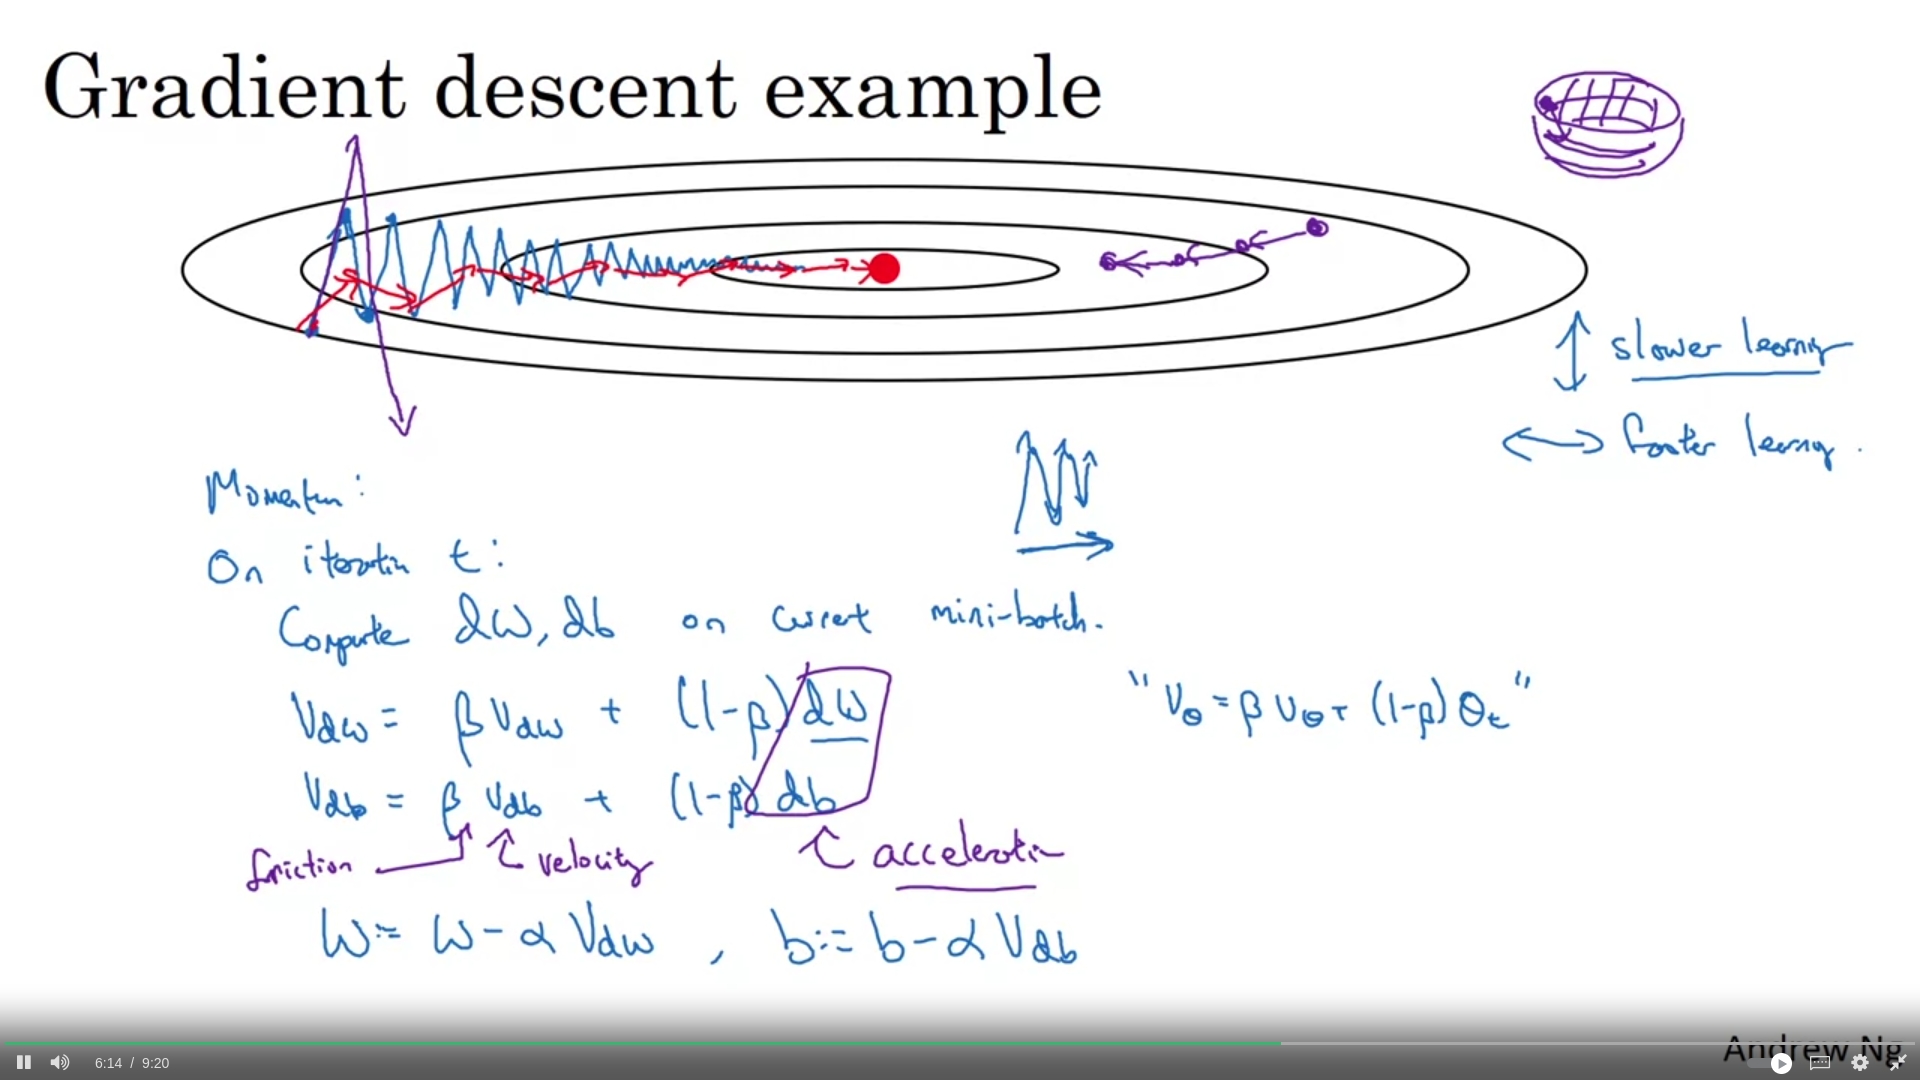 Gradient descent example
slower learning
faster learning.
Momentum:
On iteration t:
Compute dW, db on current mini-batch.
Vdw = β Vdw + (1-β) dW
"Vθ = β Vθ + (1-β) θt"
Vdb = β Vdb + (1-β) db
friction velocity acceleration
W := W - α Vdw , b := b - α Vdb
Andrew Ng
6:14 / 9:20